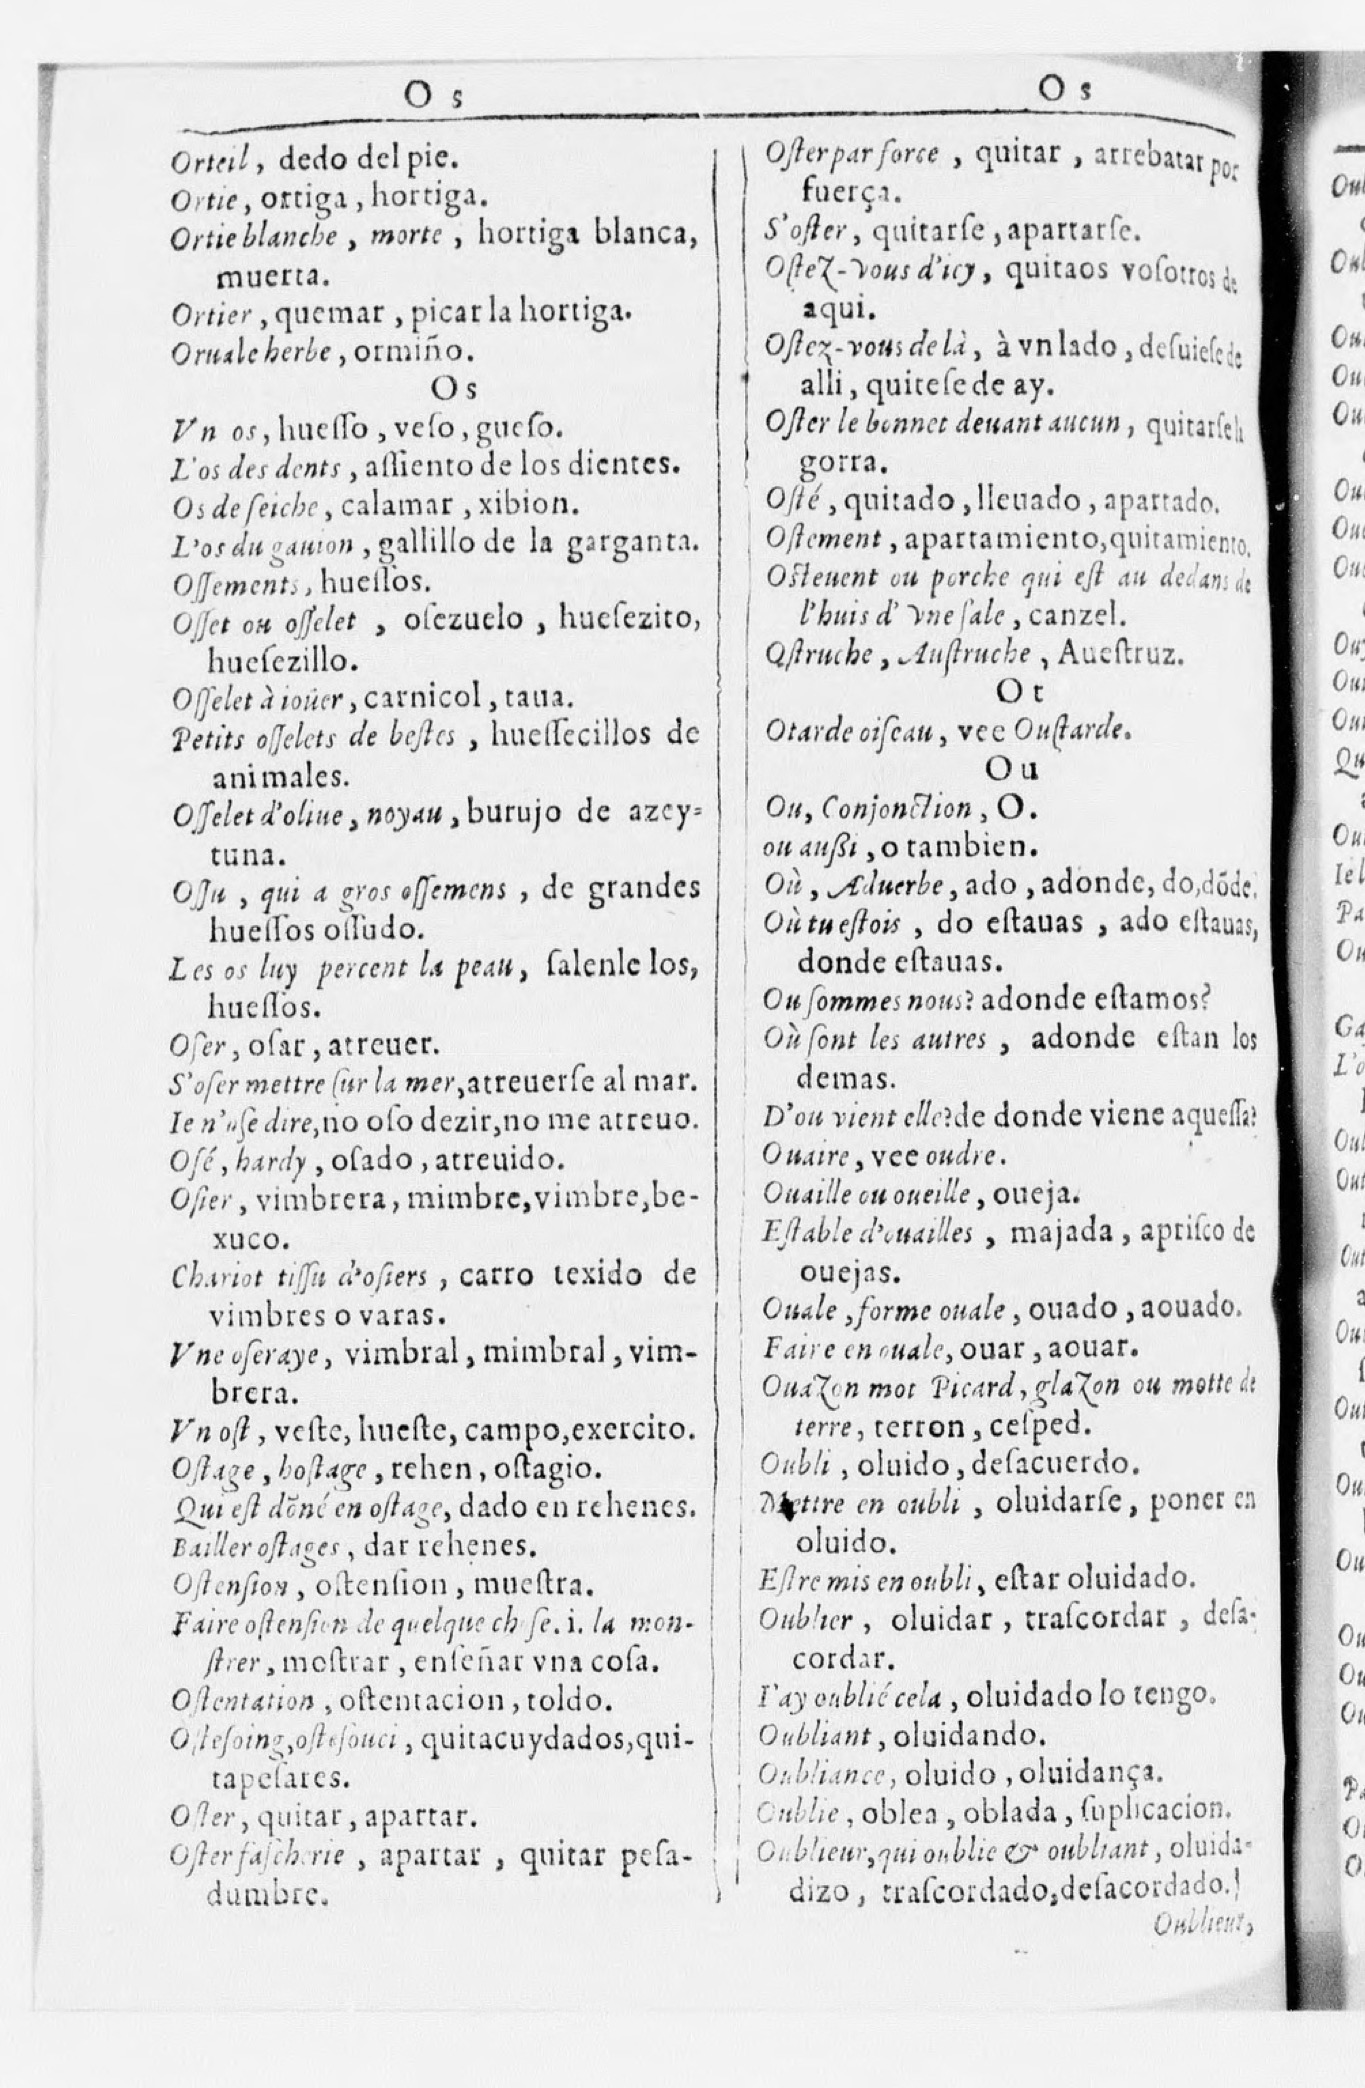 O s
O s
Orteil, dedo del pie.
Ortie, ortiga, hortiga.
Ortie blanche, morte, hortiga blanca,
muerta.
Ortier, quemar, picar la hortiga.
Oruale herbe, ormiño.
Os
Vn os, hueſſo, veſo, gueſo.
L'os des dents, aſſiento de los dientes.
Os de ſeiche, calamar, xibion.
L'os du gauion, gallillo de la garganta.
Oſſements, hueſſos.
Oſſet ou oſſelet, oſezuelo, hueſezito,
hueſezillo.
Oſſelet à ioüer, carnicol, taua.
Petits oſſelets de beſtes, hueſſecillos de
animales.
Oſſelet d'oliue, noyau, burujo de azey-
tuna.
Oſſu, qui a gros oſſemens, de grandes
hueſſos oſſudo.
Les os luy percent la peau, ſalenle los,
hueſſos.
Oſer, oſar, atreuer.
S'oſer mettre ſur la mer, atreuerſe al mar.
Ie n'oſe dire, no oſo dezir, no me atreuo.
Oſé, hardy, oſado, atreuido.
Oſier, vimbrera, mimbre, vimbre, be-
xuco.
Chariot tiſſu d'oſiers, carro texido de
vimbres o varas.
Vne oſeraye, vimbral, mimbral, vim-
brera.
Vn oſt, veſte, hueſte, campo, exercito.
Oſtage, hoſtage, rehen, oſtagio.
Qui eſt dõné en oſtage, dado en rehenes.
Bailler oſtages, dar rehenes.
Oſtenſion, oſtenſion, mueſtra.
Faire oſtenſion de quelque choſe. i. la mon-
ſtrer, moſtrar, enſeñar vna coſa.
Oſtentation, oſtentacion, toldo.
Oſteſoing, oſteſouci, quitacuydados, qui-
tapeſares.
Oſter, quitar, apartar.
Oſter faſcherie, apartar, quitar peſa-
dumbre.
Oſter par force, quitar, arrebatar por
fuerça.
S'oſter, quitarſe, apartarſe.
Oſtez-vous d'icy, quitaos voſotros de
aqui.
Oſtez-vous de là, à vn lado, deſuieſe de
alli, quiteſe de ay.
Oſter le bonnet deuant aucun, quitarſe la
gorra.
Oſté, quitado, lleuado, apartado.
Oſtement, apartamiento, quitamiento.
Oſteuent ou porche qui eſt au dedans de
l'huis d'vne ſale, canzel.
Oſtruche, Auſtruche, Aueſtruz.
Ot
Otarde oiſeau, vee Ouſtarde.
Ou
Ou, Conjonction, O.
ou außi, o tambien.
Où, Aduerbe, ado, adonde, do, dõde.
Où tu eſtois, do eſtauas, ado eſtauas,
donde eſtauas.
Ou ſommes nous? adonde eſtamos?
Où ſont les autres, adonde eſtan los
demas.
D'ou vient elle? de donde viene aqueſſa?
Ouaire, vee oudre.
Ouaille ou oueille, oueja.
Eſtable d'ouailles, majada, apriſco de
ouejas.
Ouale, forme ouale, ouado, aouado.
Faire en ouale, ouar, aouar.
Ouazon mot Picard, glazon ou motte de
terre, terron, ceſped.
Oubli, oluido, deſacuerdo.
Mettre en oubli, oluidarſe, poner en
oluido.
Eſtre mis en oubli, eſtar oluidado.
Oublier, oluidar, traſcordar, deſa-
cordar.
I'ay oublié cela, oluidado lo tengo.
Oubliant, oluidando.
Oubliance, oluido, oluidança.
Oublie, oblea, oblada, ſuplicacion.
Oublieur, qui oublie & oubliant, oluida-
dizo, traſcordado, deſacordado.
Oublieux,